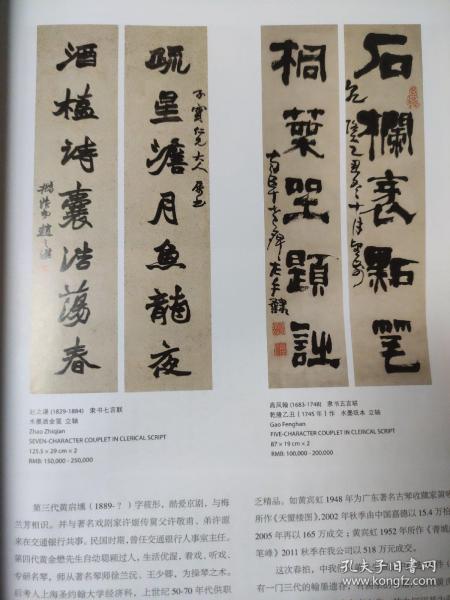 石欄衺點笔
桐葉坐題詩
疏星澹月魚龍夜
子實仁兄大人屬書
酒榼詩囊浩蕩春
赵之谦 (1829-1884) 隶书七言联
水墨洒金笺 立轴
Zhao Zhiqian
SEVEN-CHARACTER COUPLET IN CLERICAL SCRIPT
125.5 × 29 cm × 2
RMB: 150,000 - 250,000
高凤翰 (1683-1748) 隶书五言联
乾隆乙丑〔1745 年〕作 水墨纸本 立轴
Gao Fenghan
FIVE-CHARACTER COUPLET IN CLERICAL SCRIPT
87 × 19 cm × 2
RMB: 100,000 - 200,000
第三代黄启埙 (1889-？) 字莜彤，酷爱京剧，与梅
兰芳相识。并与著名戏剧家许姬传舅父许敬甫、弟许源
来在交通银行共事，民国时期，曾任交通银行人事室主任。
第四代黄金懋先生自幼聪颖过人，生活优渥，看戏、听戏、
专研名琴，师从著名琴师徐兰沅、王少卿，为操琴之术。
后考入上海圣约翰大学经济科，上世纪 50-70 年代供职
乏精品。如黄宾虹 1948 年为广东著名古琴收藏家黄
所作《天蟹楼图》，2002 年秋季由中国嘉德以 15.4 万拍
2005 年再以 165 万成交；黄宾虹 1952 年所作《青城
笔峰》2011 秋季在我公司以 518 万元成交。
这次春拍，中
有一门三代的翰墨遗存，
孔夫子旧书网